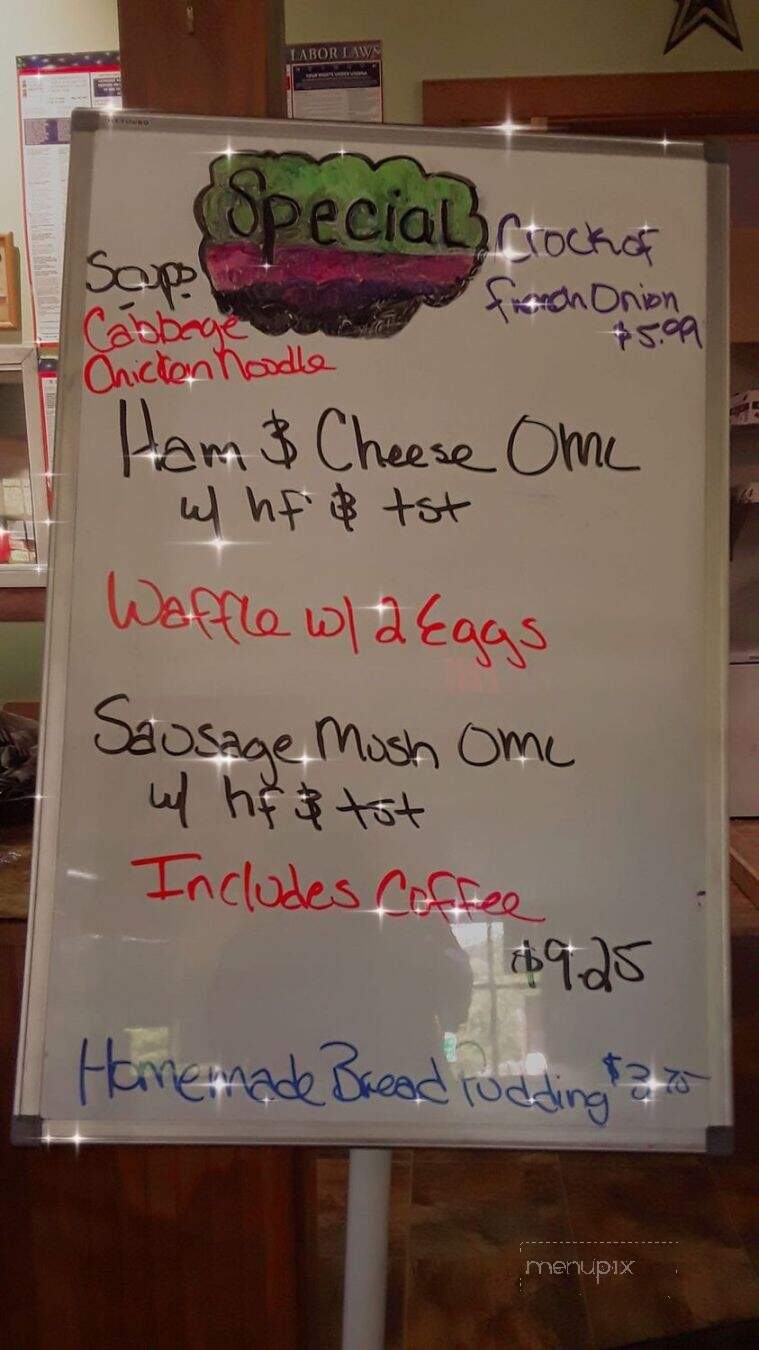 LABOR LAWS
Special
Soups
Cabbage
Chicken Noodle
Crock of
French Onion
$5.99
Ham & Cheese Omc
w/ hf & tst
Waffle w/ 2 Eggs
Sausage Mush Omc
w/ hf & tst
Includes Coffee
$9.25
Homemade Bread Pudding $3.75
menupix